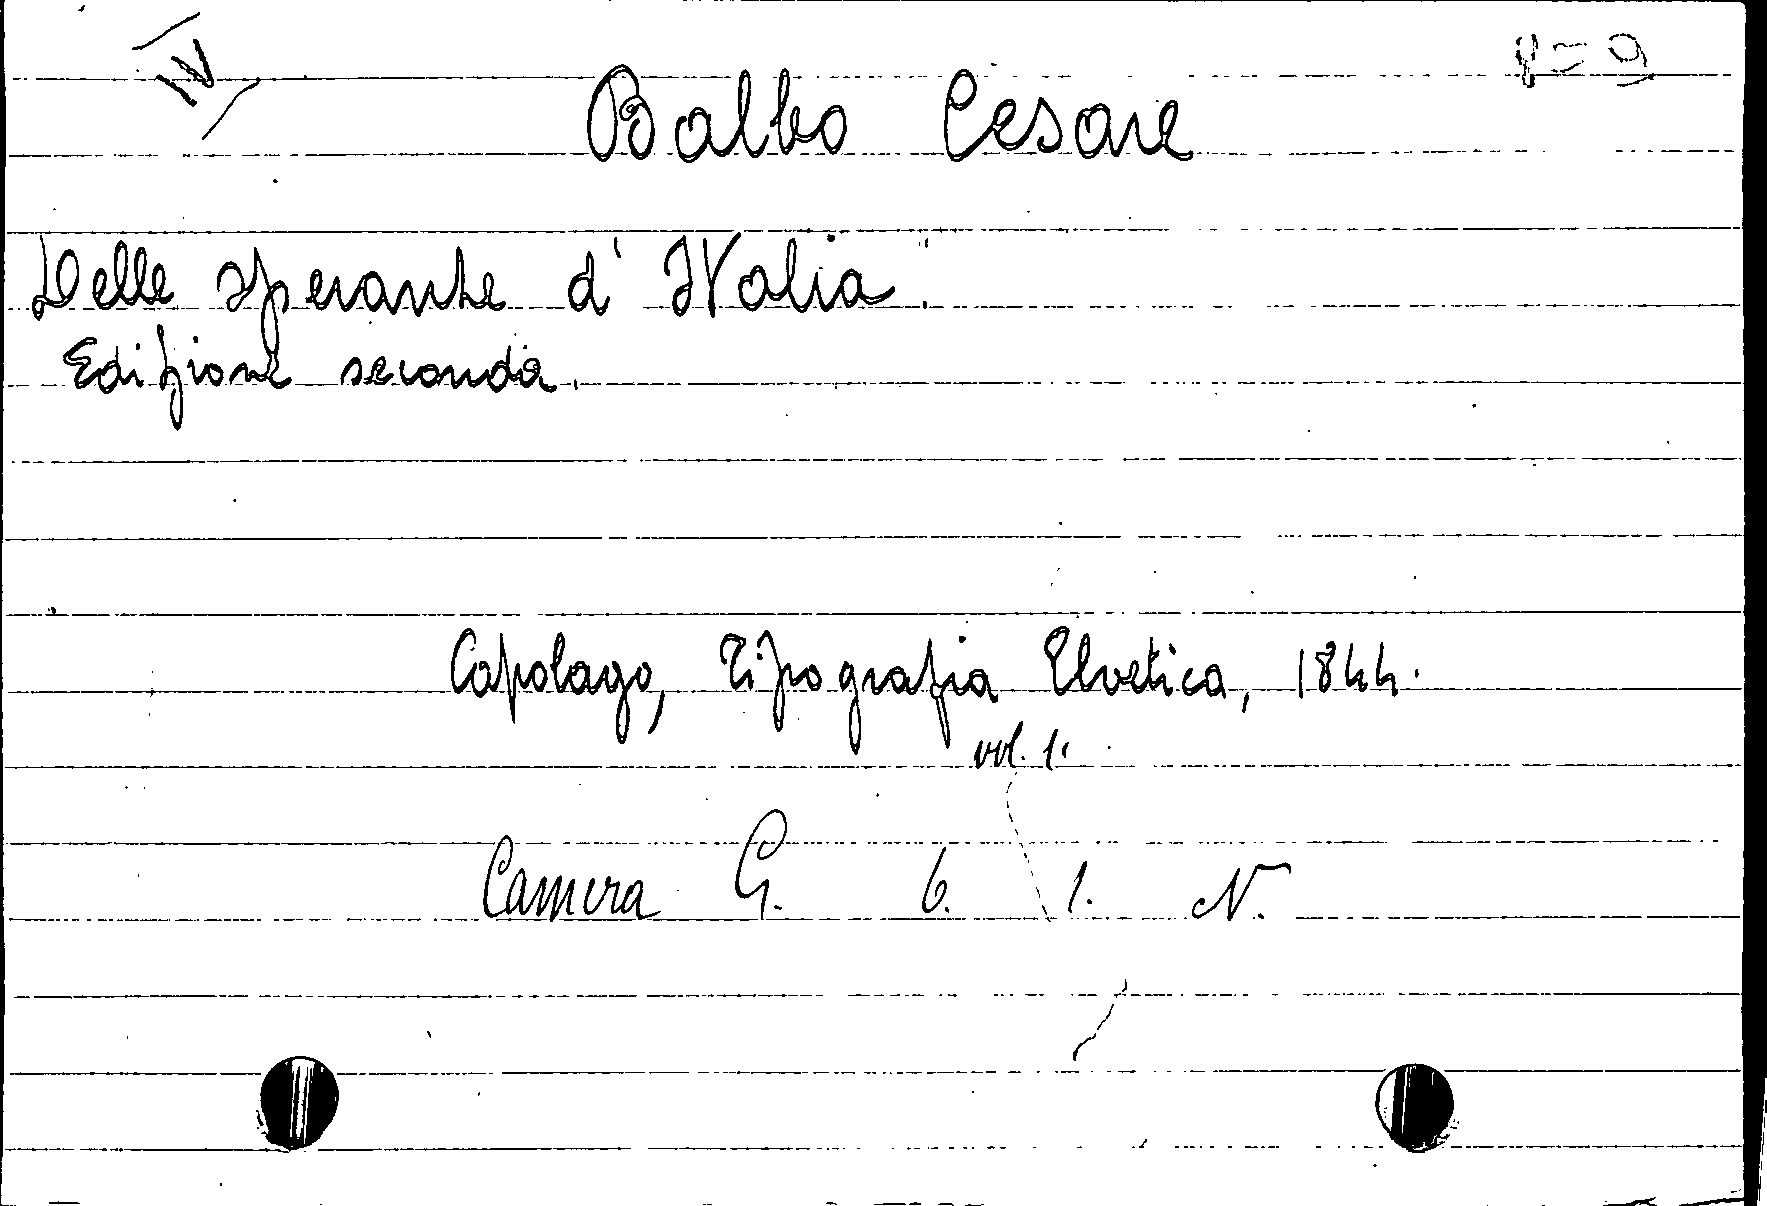 IV
Balbo Cesare
Delle speranze d'Italia.
Edizione seconda.
Capolago, Tipografia Elvetica, 1844.
vol. 1.
Camera G. 6. 1. N.